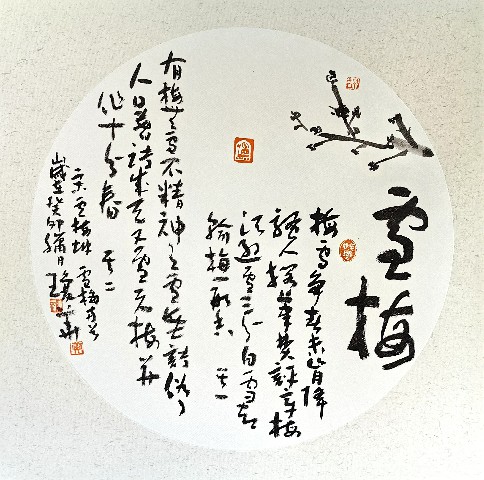 雪梅
梅雪争春未肯降
骚人搁筆费評章梅
须逊雪三分白雪却
输梅一段香 其一
有梅無雪不精神有雪無詩俗了
人日暮詩成天又雪与梅并
作十分春 其二
宋盧梅坡 雪梅
歲在癸卯 月